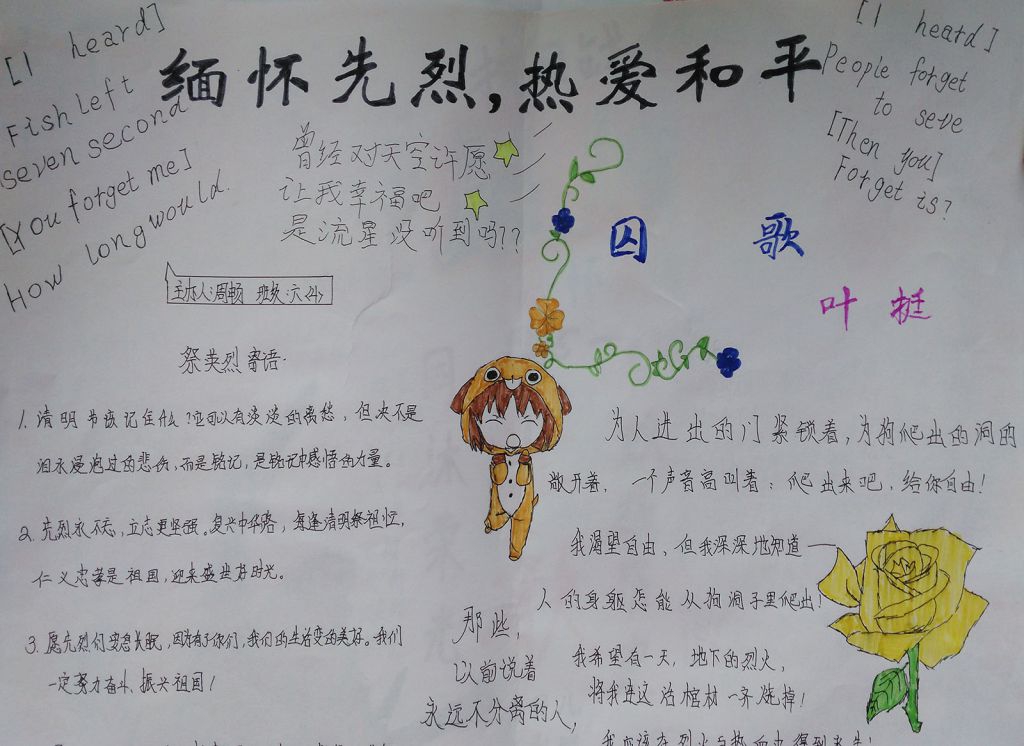 缅怀先烈,热爱和平
[I heard]
Fish left
seven second
[You forget me]
How long would.
[I heard]
People forget
to seve
[Then you]
Forget is?
曾经对天空许愿
让我幸福吧
是流星没听到吗??
主办人:周畅 班级:六〈4〉
祭英烈寄语.
1. 清明节该记住什么?它可以有淡淡的离愁,但决不是
泪水浸泡过的悲伤,而是铭记,是铭记中感悟的力量。
2. 先烈永不忘,立志更坚强。复兴中华路,每逢清明祭祖忙,
仁义忠孝是祖国,迎来盛世好时光。
3. 愿先烈们安息长眠,因为有了你们,我们的生活变的美好。我们
一定努力奋斗、振兴祖国!
囚歌
叶挺
为人进出的门紧锁着,为狗爬出的洞的
敞开着,一个声音高叫着:爬出来吧,给你自由!
我渴望自由,但我深深地知道——
人的身躯怎能从狗洞子里爬出!
我希望有一天,地下的烈火,
将我连这活棺材一齐烧掉!
我应该在烈火与热血中得到永生!
那些,
以前说着
永远不分离的人,